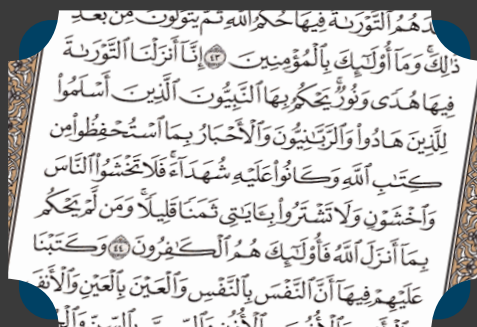 فِيهَا حُكْمُ ٱللَّهِ ثُمَّ يَتَوَلَّوْنَ مِنۢ بَعْدِ
ذَٰلِكَۚ وَمَآ أُو۟لَٰٓئِكَ بِٱلْمُؤْمِنِينَ ٤٣ إِنَّآ أَنزَلْنَا ٱلتَّوْرَىٰةَ
فِيهَا هُدًى وَنُورٌۚ يَحْكُمُ بِهَا ٱلنَّبِيُّونَ ٱلَّذِينَ أَسْلَمُوا۟
لِلَّذِينَ هَادُوا۟ وَٱلرَّبَّٰنِيُّونَ وَٱلْأَحْبَارُ بِمَا ٱسْتُحْفِظُوا۟ مِن
كِتَٰبِ ٱللَّهِ وَكَانُوا۟ عَلَيْهِ شُهَدَآءَۚ فَلَا تَخْشَوُا۟ ٱلنَّاسَ
وَٱخْشَوْنِ وَلَا تَشْتَرُوا۟ بِـَٔايَٰتِى ثَمَنًا قَلِيلًاۚ وَمَن لَّمْ يَحْكُم
بِمَآ أَنزَلَ ٱللَّهُ فَأُو۟لَٰٓئِكَ هُمُ ٱلْكَٰفِرُونَ ٤٤ وَكَتَبْنَا
عَلَيْهِمْ فِيهَآ أَنَّ ٱلنَّفْسَ بِٱلنَّفْسِ وَٱلْعَيْنَ بِٱلْعَيْنِ وَٱلْأَنفَ